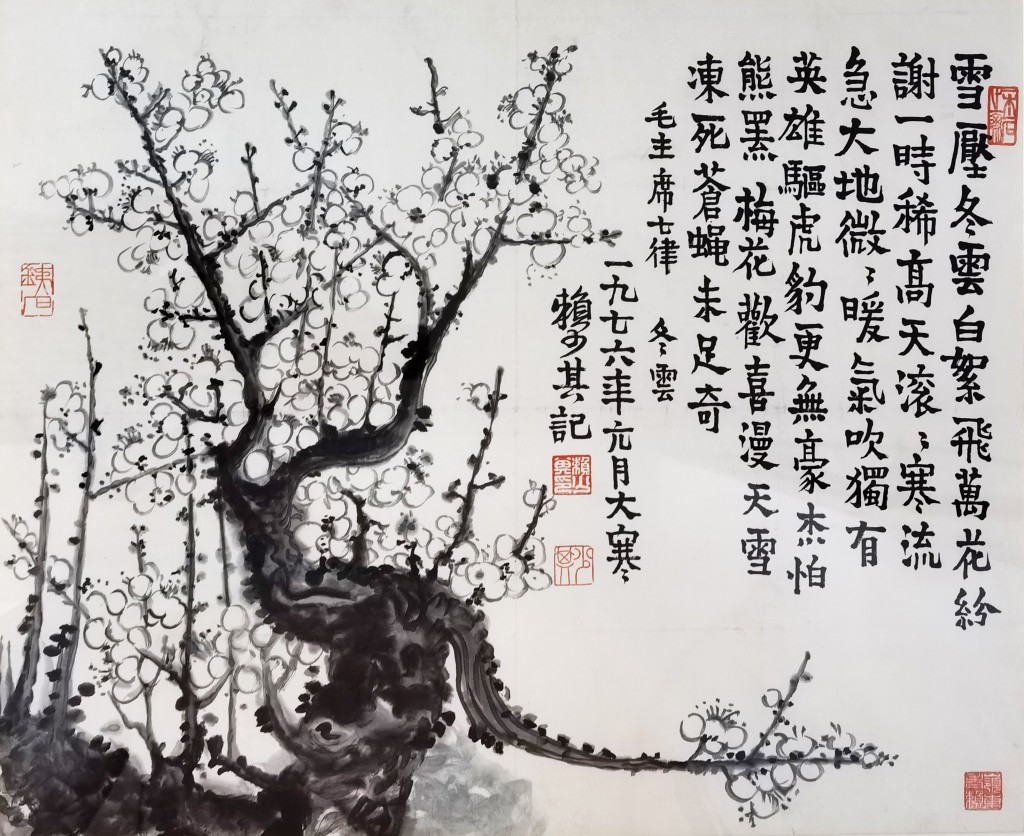 雪壓冬雲白絮飛萬花紛
謝一時稀髙天滚〻寒流
急大地微〻暖氣吹獨有
英雄驅虎豹更無豪杰怕
熊羆梅花歡喜漫天雪
凍死蒼蝇未足奇
毛主席七律 冬雲
一九七六年元月大寒
賴少其記